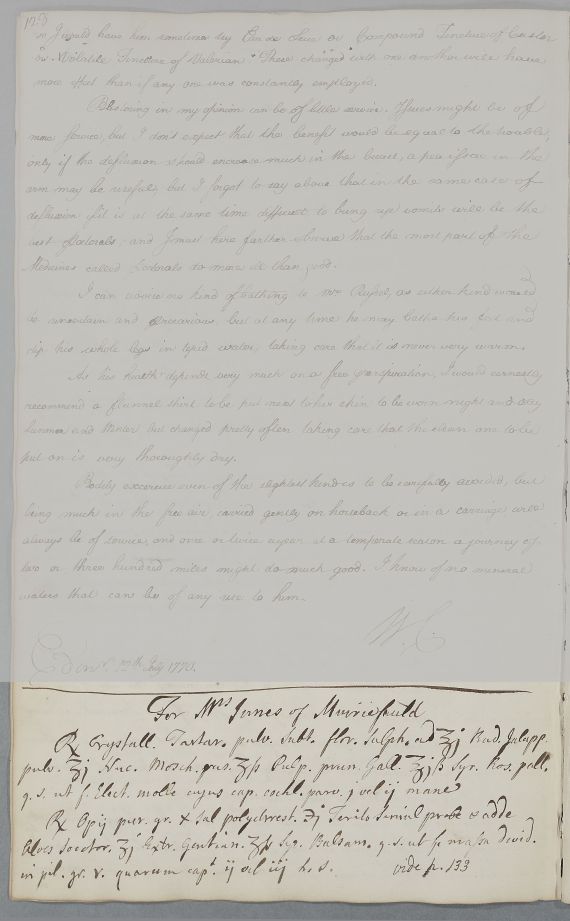 12.d
or I would have him sometimes try Eau de Luce or Compound Tincture of Castor
or Volatile Tincture of Valerian. These changed with one another will have
more effect than if any one was constantly employed.
Blistering in my opinion can be of little service. Issues might be of
more service, but I don't expect that the benefit would be equal to the trouble,
only if the defluxion should encrease much in the breast, a pea issue in the
arm may be useful, but I forgot to say above that in the same case of
defluxion if it is at the same time difficult to bring up vomits will be the
best Pectorals, and I must here farther observe that the most part of the
Medicines called Pectorals do more ill than good.
I can advise no kind of bathing to Mr. as either kind
is uncertain and precarious, but at any time he may bathe his feet and
dip his whole legs in tepid water, taking care that it is never very warm.
As his health depends very much on a free perspiration, I would earnestly
recommend a flannel shirt to be put next to his skin to be worn night and day
Summer and Winter but changed pretty often taking care that the clean one to be
put on is very thoroughly dry.
Bodily exercise even of the slightest kind is to be carefully avoided, but
being much in the free air carried gently on horseback or in a carriage will
always be of service, and once or twice a year at a temperate season a journey of
two or three hundred miles might do much good. I know of no mineral
waters that can be of any use to him.
W. C.
Edinr. July 1773.
For Mrs Innes of
℞ Crystall. Tartar. pulv. subt. flor. sulph. ad ʒj Rad. Jalapp.
pulv. ʒj Nuc. Mosch. pus. ʒſs Pulp. prun. Gall. ʒjſs Syr. Ros. pall.
q. s. ut f. Elect. molle cujus cap. cochl. parv. j vel ij mane
℞ Opij pur. gr. x Sal polychrest. ʒj Tritis simul probe adde
Aloes Socotor. ʒj Extr. Gentian. ʒſs Syr. Balsam. q. s. ut f. massa divid.
in pil. gr. v. quarum capt. ij vel iij h. s. vide p. 133